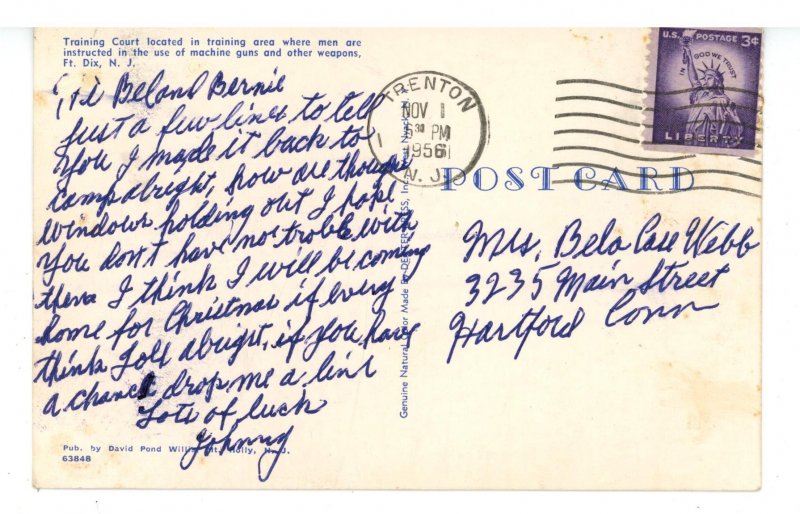 Training Court located in training area where men are
instructed in the use of machine guns and other weapons,
Ft. Dix, N. J.
Hi Bel and Bernie
Just a few lines to tell
You I made it back to
camp alright, how are though
windows holding out I hope
You don't have not troble with
them I think I will be coming
home for Christmas if every
think goll alright, if you have
a chance drop me a line
Lots of luck
Johnny
Pub. by David Pond Willis, Mt. Holly, N. J.
63848
Genuine Natural Color Made By DEXTER PRESS, Inc.
TRENTON
NOV 1
30 PM
1956
N. J.
U.S. POSTAGE 3¢
IN GOD WE TRUST
LIBERTY
POST CARD
Mrs. Bela Case Webb
3235 Main Street
Hartford Conn